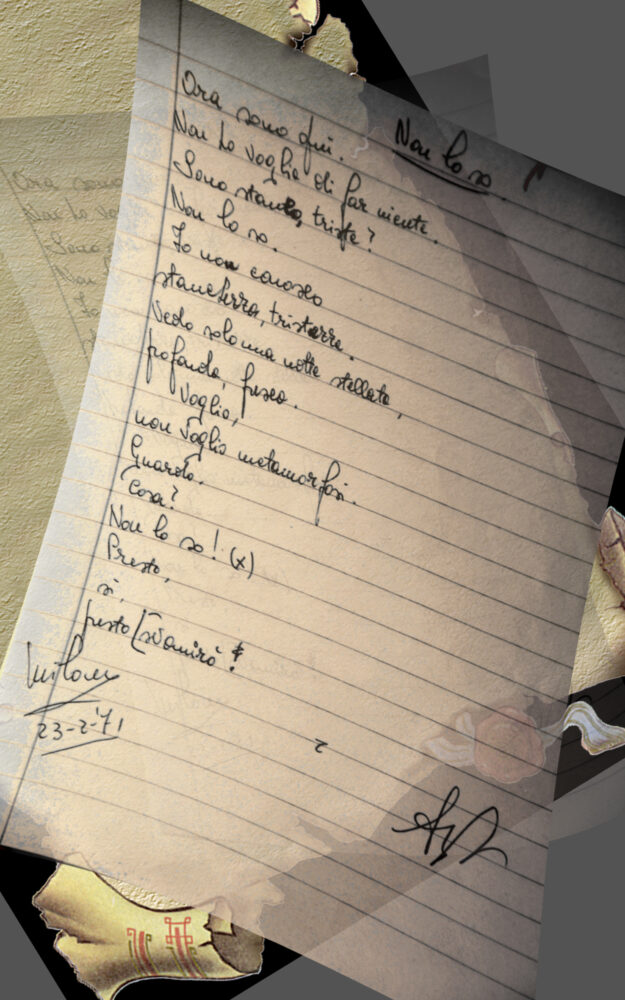 Non lo so
Ora sono qui.
Non ho voglia di far niente.
Sono stanco, triste?
Non lo so.
Io non conosco
stanchezza, tristezza.
Vedo solo una notte stellata,
profonda, fresca.
Voglio,
non voglio metamorfosi.
Guardo.
Cosa?
Non lo so! (x)
Presto,
sì,
presto svanirò!
Milano
23-2-'71
2